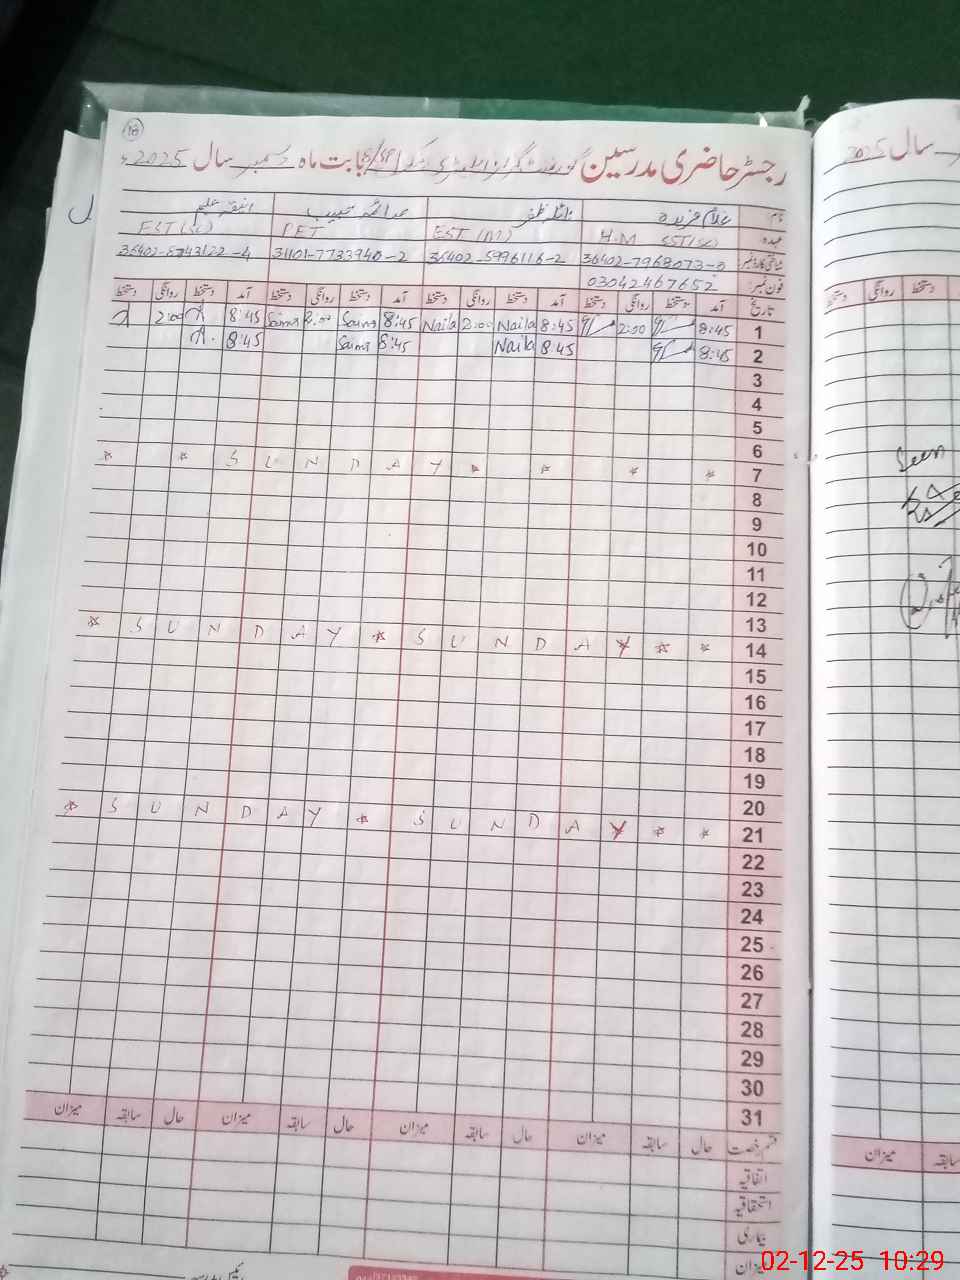 18
رجسٹر حاضری مدرسین گورنمنٹ گرلز بابت ماہ دسمبر سال 2025ء
نام: نائلہ ظفر صائمہ حبیب
عہدہ: H.M SST(Sc) EST (M) PET EST (Sc)
شناختی کارڈ نمبر: 36402-7968073-8 36402-5996116-2 31101-7733940-2 36402-8743122-4
فون نمبر: 03042467652
تاریخ آمد دستخط روانگی دستخط آمد دستخط روانگی دستخط آمد دستخط روانگی دستخط آمد دستخط روانگی دستخط
1 8:45 2:00 8:45 Naila 2:00 Naila 8:45 Saima 2:00 Saima 8:45 2:00
2 8:45 8:45 Naila 8:45 Saima 8:45
3
4
5
6
7 * * S U N D A Y * * * *
8
9
10
11
12
13
14 * S U N D A Y * S U N D A Y * *
15
16
17
18
19
20
21 * S U N D A Y * S U N D A Y * *
22
23
24
25
26
27
28
29
30
31
قسم رخصت حال سابقہ میزان حال سابقہ میزان حال سابقہ میزان حال سابقہ میزان
اتفاقیہ
استحقاقیہ
بیماری
میزان
سال 2025
دستخط روانگی دستخط
Seen
میزان سابقہ
02-12-25 10:29